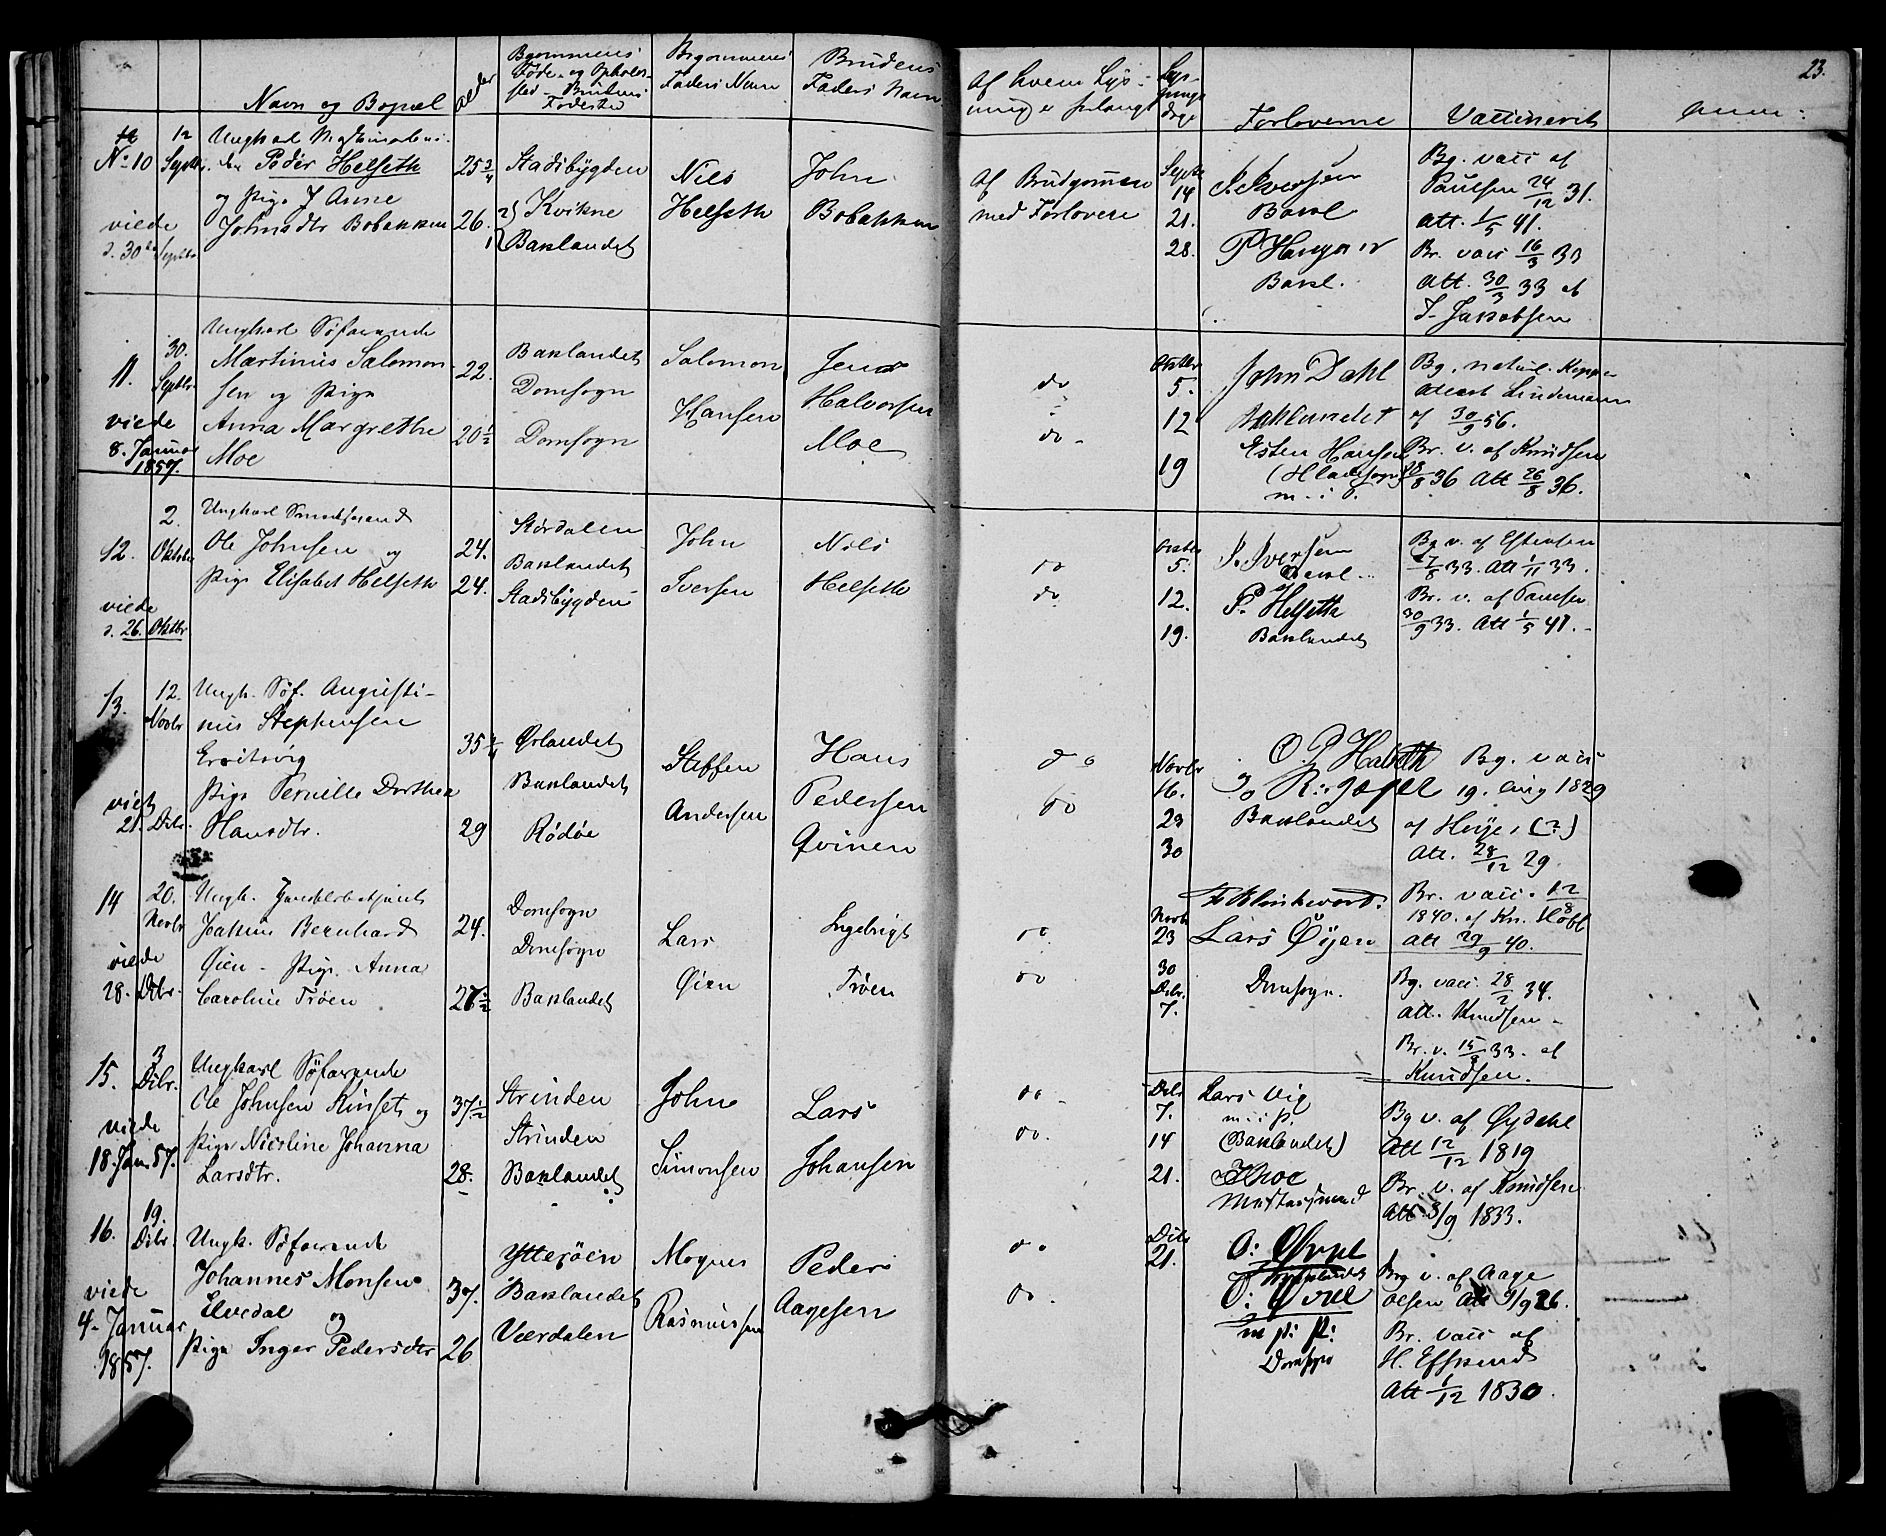 23.
Navn og Bopæl
Alder
Brgommens
Føde- og Opholds-
sted - Brudens
Fødested
Brgommens
Faders Navn
Brudens
Faders Navn
Af hvem Lys-
ning er forlangt
Lys-
nings
dage
Forloverne
Vaccineret
Anm:
No 10
12
Septbr.
Ungkarl
Peder Helseth
og Pige Anne
Johnsdtr Bobakken
viede
d. 30te Septbr
25 3/4
26
Stadsbygden
2) Kvikne
1) Baklandet
Nils
Helseth
John
Bobakken
Af Brudgommen
med Forlovere
Septbr
14
21.
28.
J. Iversen
Bakl
Bakl.
Bg. vacc af
Paulsen 24/12 31.
Att. 1/5 41.
Br. vacc 16/3 33
Att. 30/3 33 af
J. Jakobsen
11.
30.
Septbr.
Ungkarl Søfarende
Martinus Salomon-
sen og Pige
Anna Margrethe
Moe
viede
8. Januar
1857.
22.
20 1/2
Baklandet
Domsogn
Domsogn
Salomon
Hansen
Jens
Halvorsen
Moe
do
do -
Oktbr
5.
12
19
John Dahl
Baklandet
Esten Hansen
(Hladesogn)
m. i P.
Bg. naturl. Kopper
Attest Lindemann
af 30/9 56.
Br. v. af Knudsen
18/8 36 Att 26/8 36.
12.
2.
Oktober
Ungkarl
Ole Johnsen og
Pige Elisabet Helseth
viede
d. 26. Oktbr
24.
24.
Størdalen
Baklandet
Stadsbygden
John
Iversen
Nils
Helseth
do
do
Oktbr
5.
12.
19.
J. Iversen
Bakl.
P. Helseth
Baklandet
Bg v. af Estensen
27/8 33. Att 1/11 33.
Br. v. af Paulsen
30/9 33. Att 1/5 41.
13.
12.
Novbr
Ungk. Søf. Augusti-
nus Stephensen
Pige Pernille Dorthea
Hansdtr.
viet
21. Dcbr.
35
29
Ørlandet
Baklandet
Rödöe
Steffen
Andersen
Hans
Pedersen
Qvinen
do
do
Novbr
16.
23
30
og
Baklandet
Bg. vacc
19. Aug 1829
af (?)
Att. 28/12 29.
Br. vacc. 12/8
1840. af Kn.
Att 29/9 40.
14
20.
Novbr
Ungk.
Joakim Bernhard
Øien - Pige Anna
Caroline Trøen
viede
28. Dcbr.
24.
27 1/2
Domsogn
Domsogn
Baklandet
Lars
Øien
Ingebrigt
Trøen
do
do
Novbr
23
30
Dcbr.
7.
Lars Øyen
Domsogn.
Bg. vacc. 28/2 34.
Att. Knudsen -
Br. v. 15/9 33. af
Knudsen.
15.
3
Dcbr.
Ungkarl Søfarende
Ole Johnsen Kinset og
Pige Nicoline Johanna
Larsdtr.
viede
18. Jan. 57.
37 1/2
28.
Strinden
Strinden
Baklandet
John
Simonsen
Lars
Johansen
do
do.
Dcbr
7.
14
21.
Lars Vig
m. i P.
(Baklandet)
Bg v. af Øydahl
Att 12/12 1819
Br. v. af Knudsen
Att 3/9 1833.
16.
19.
Dcbr.
Ungk. Søfarende
Johannes Monsen
Elvedal og
Pige Inger Pedersdtr
viede
4. Januar
1857.
37.
26
Ytterøen
Baklandet
Værdalen
Mognes
Rasmussen
Peder
Aagesen
do
do.
Dcbr
21.
m. p: P:
Domsogn
Bg v. af Aage
Olsen Att 9/9 26.
Br. vacc af
H.
Att 1/12 1830.